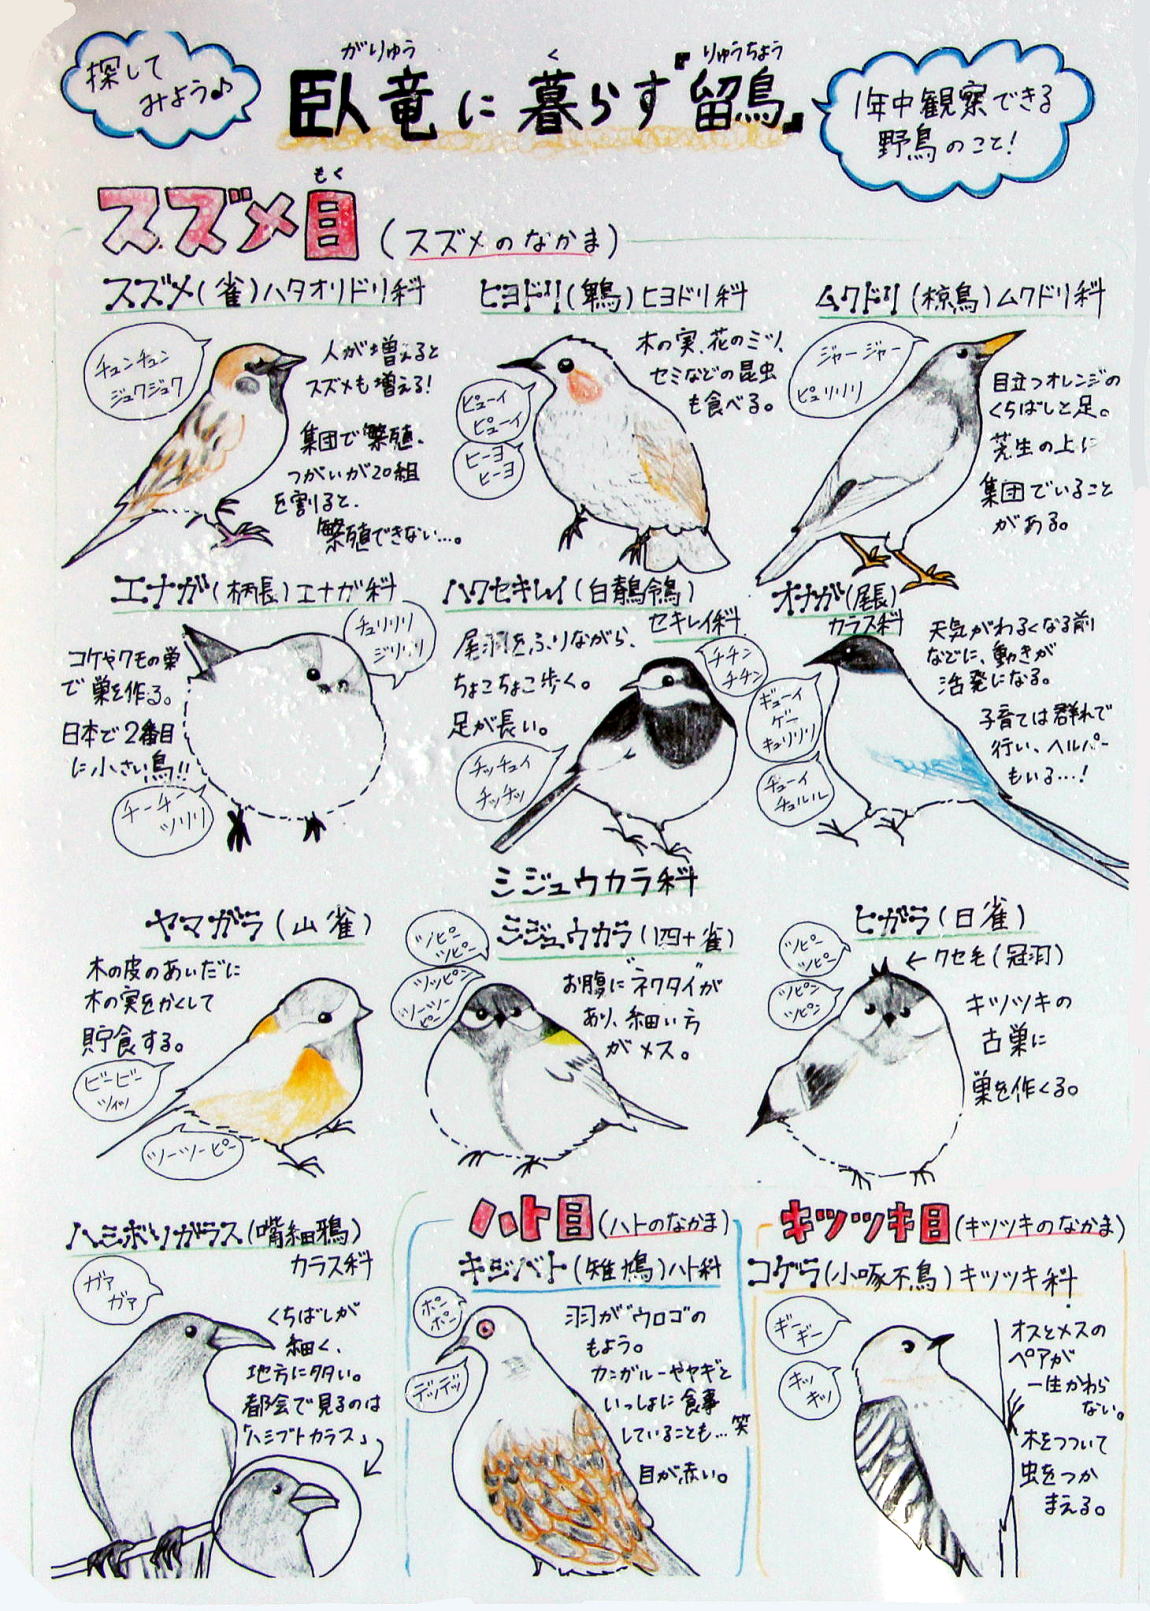 探して
みよう♪
がりゅう
く
りゅうちょう
臥竜に暮らす『留鳥』
1年中観察できる
野鳥のこと!
もく
スズメ目(スズメのなかま)
スズメ(雀)ハタオリドリ科
チュンチュン
ジュクジュク
人が増えると
スズメも増える!
集団で繁殖、
つがいが20組
を割ると、
繁殖できない…。
ヒヨドリ(鵯)ヒヨドリ科
ピューイ
ピューイ
ヒーヨ
ヒーヨ
木の実、花のミツ、
セミなどの昆虫
も食べる。
ムクドリ(椋鳥)ムクドリ科
ジャージャー
ピュリリリ
目立つオレンジの
くちばしと足。
芝生の上に
集団でいること
がある。
エナガ(柄長)エナガ科
コケやクモの巣
で巣を作る。
日本で2番目
に小さい鳥!!
チュリリリ
ジリリリ
チーチー
ツリリ
ハクセキレイ(白鶺鴒)
セキレイ科
尾羽をふりながら、
ちょこちょこ歩く。
足が長い。
チチン
チチン
チッチュイ
チッチッ
オナガ(尾長)
カラス科
ギューイ
ゲー
キュリリリ
チューイ
チュルル
天気がわるくなる前
などに、動きが
活発になる。
子育ては群れで
行い、ヘルパー
もいる…!
シジュウカラ科
ヤマガラ(山雀)
木の皮のあいだに
木の実をかくして
貯食する。
ビービー
ツィツィ
ツーツーピー
シジュウカラ(四十雀)
ツピン
ツピン
ツッピン
ツーツー
ピー
お腹に"ネクタイ"が
あり、細い方
がメス。
ヒガラ(日雀)
ツピン
ツピン
ツピン
ツピン
←クセ毛(冠羽)
キツツキの
古巣に
巣を作くる。
ハシボソガラス(嘴細鴉)
カラス科
ガァ
ガァ
くちばしが
細く、
地方に多い。
都会で見るのは
「ハシブトカラス」
ハト目(ハトのなかま)
キジバト(雉鳩)ハト科
ポン
ポン
デッデッ
羽が"ウロコ"の
もよう。
カンガルーやヤギと
いっしょに食事
していることも…笑
目が赤い。
キツツキ目(キツツキのなかま)
コゲラ(小啄木鳥)キツツキ科
ギー
ギー
キッ
キッ
オスとメスの
ペアが
一生かわら
ない。
木をつついて
虫をつか
まえる。